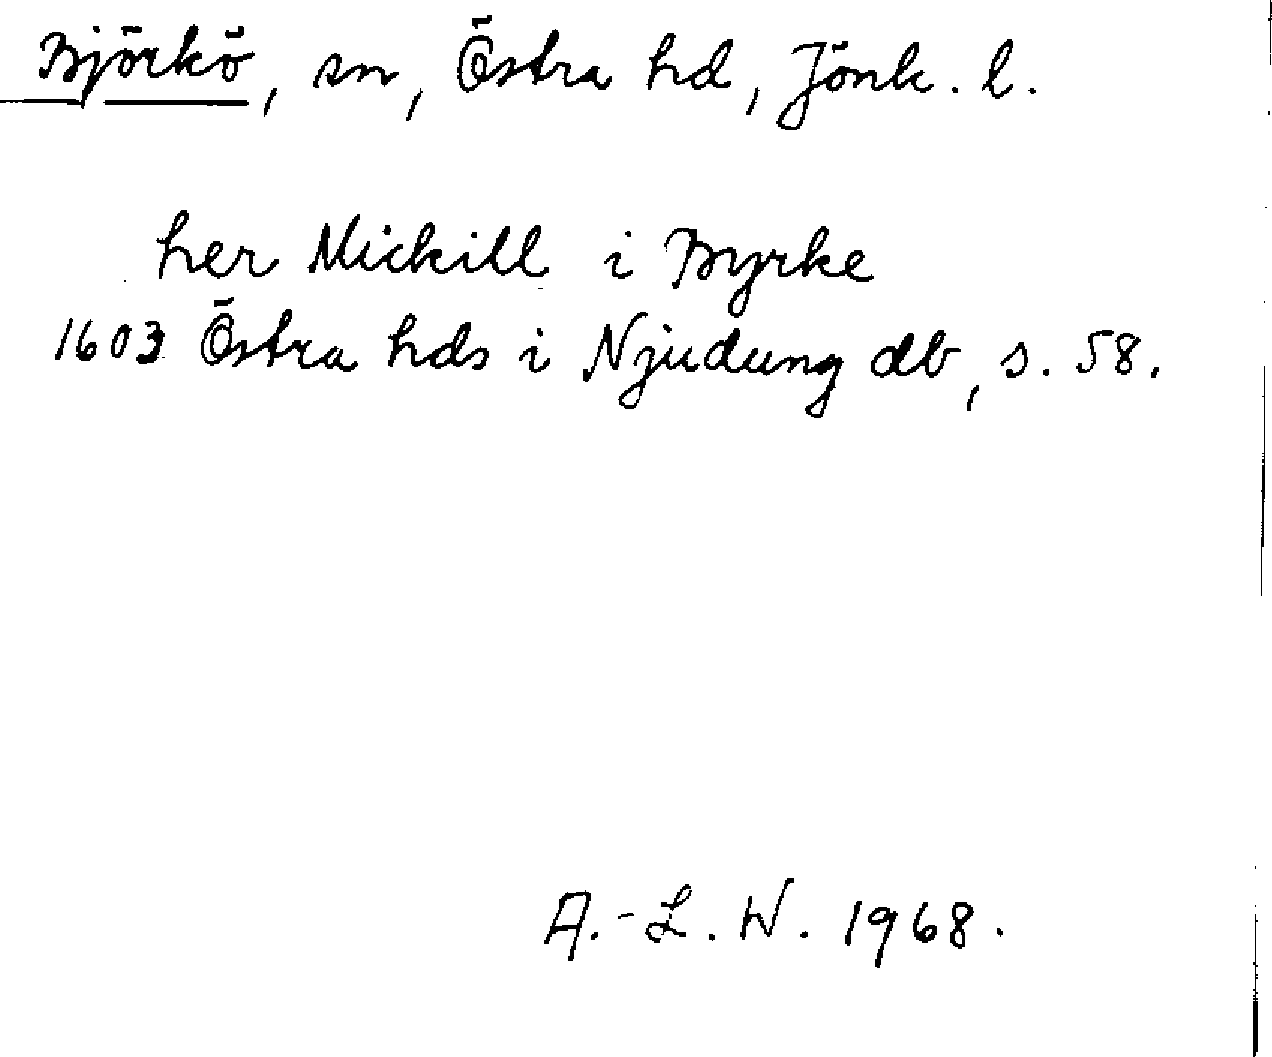 Björkö, sn, Östra hd, Jönk. l.
her Mickill i Byrke
1603 Östra hds i Njudung db, s. 58.
A.-L. W. 1968.